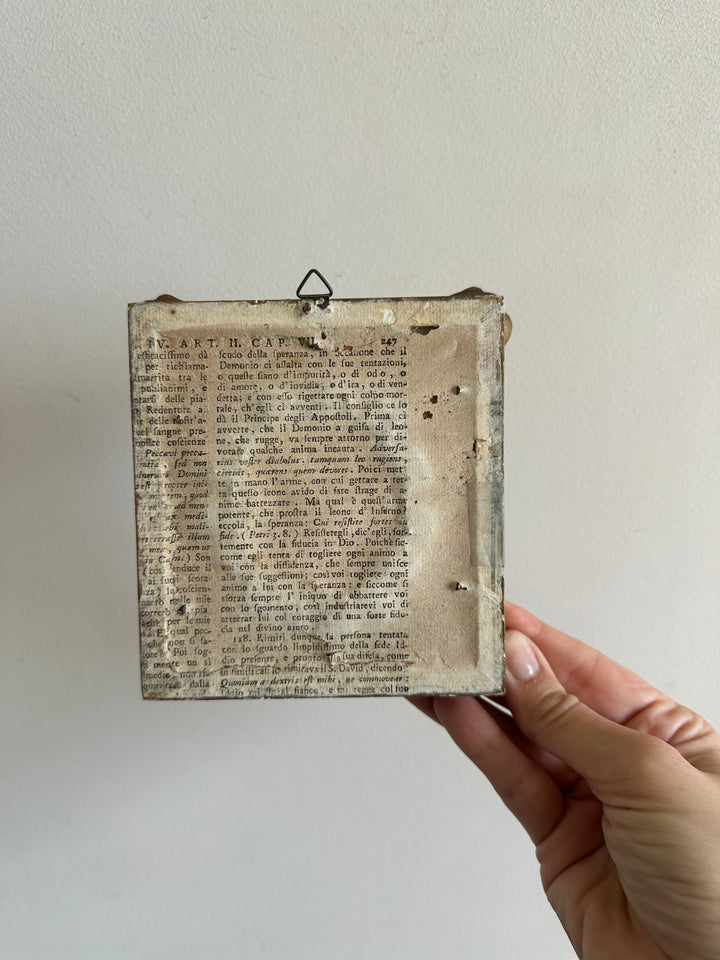 IV. ART. II. CAP. VII. 247
efficacissimo dà
per richiama-
smarrita tra le
pubblicani, e
tarsi delle pia-
o Redentore al
ng delle nostr'a-
uel sangue pre-
nostre coscienze
Peccavi pecca-
sed non
Domini
est propter ini-
quod
men-
medi-
mali-
illum
quem ut
Son
(così induce il
ai suoi scora-
la coscien-
marrò nelle mie
correrò al pia
per le mie
E qual pec-
non si sa-
Poi sog-
mente un sì
medio
dalla
scudo della speranza, in occasione che il
Demonio ci assalta con le sue tentazioni,
o queste siano d'impurità, o di odo, o
di amore, o d'invidia, o d'ira, o di ven-
detta; e con esso rigettare ogni colpo mor-
tale, ch'egli ci avventi. Il consiglio ce lo
dà il Principe degli Appostoli. Prima ci
avverte, che il Demonio a guisa di leo-
ne, che rugge, va sempre attorno per di-
vorare qualche anima incauta. Adversa-
rius vester diabolus, tamquam leo rugiens,
circuit, quærens quem devoret. Poi ci met
te in mano l'arme, con cui gettare a ter-
ra questo leone avido di fare strage di a-
nime battezzate. Ma qual è quest'arme
potente, che prostra il leone d'Inferno?
eccola, la speranza: Cui resistite fortes in
fide. (Petri 3. 8.) Resistetegli, dic'egli, for-
temente con la fiducia in Dio. Poichè sic-
come egli tenta di togliere ogni animo a
voi con la diffidenza, che sempre unisce
alle sue suggestioni; così voi togliete ogni
animo a lui con la speranza: e siccome si
sforza sempre l'iniquo di abbattere voi
con lo sgomento, così industriatevi voi di
atterrar lui col coraggio di una forte fidu-
cia nel divino ajuto.
118. Rimiri dunque la persona tentata
con lo sguardo limpidissimo della fede Id-
dio presente, e pronto alla sua difesa, come
in simili casi lo rimirava il S. David, dicendo:
Quoniam a dextris est mihi, ne commovear:
Iddio mi sta al fianco, e mi regge col suo